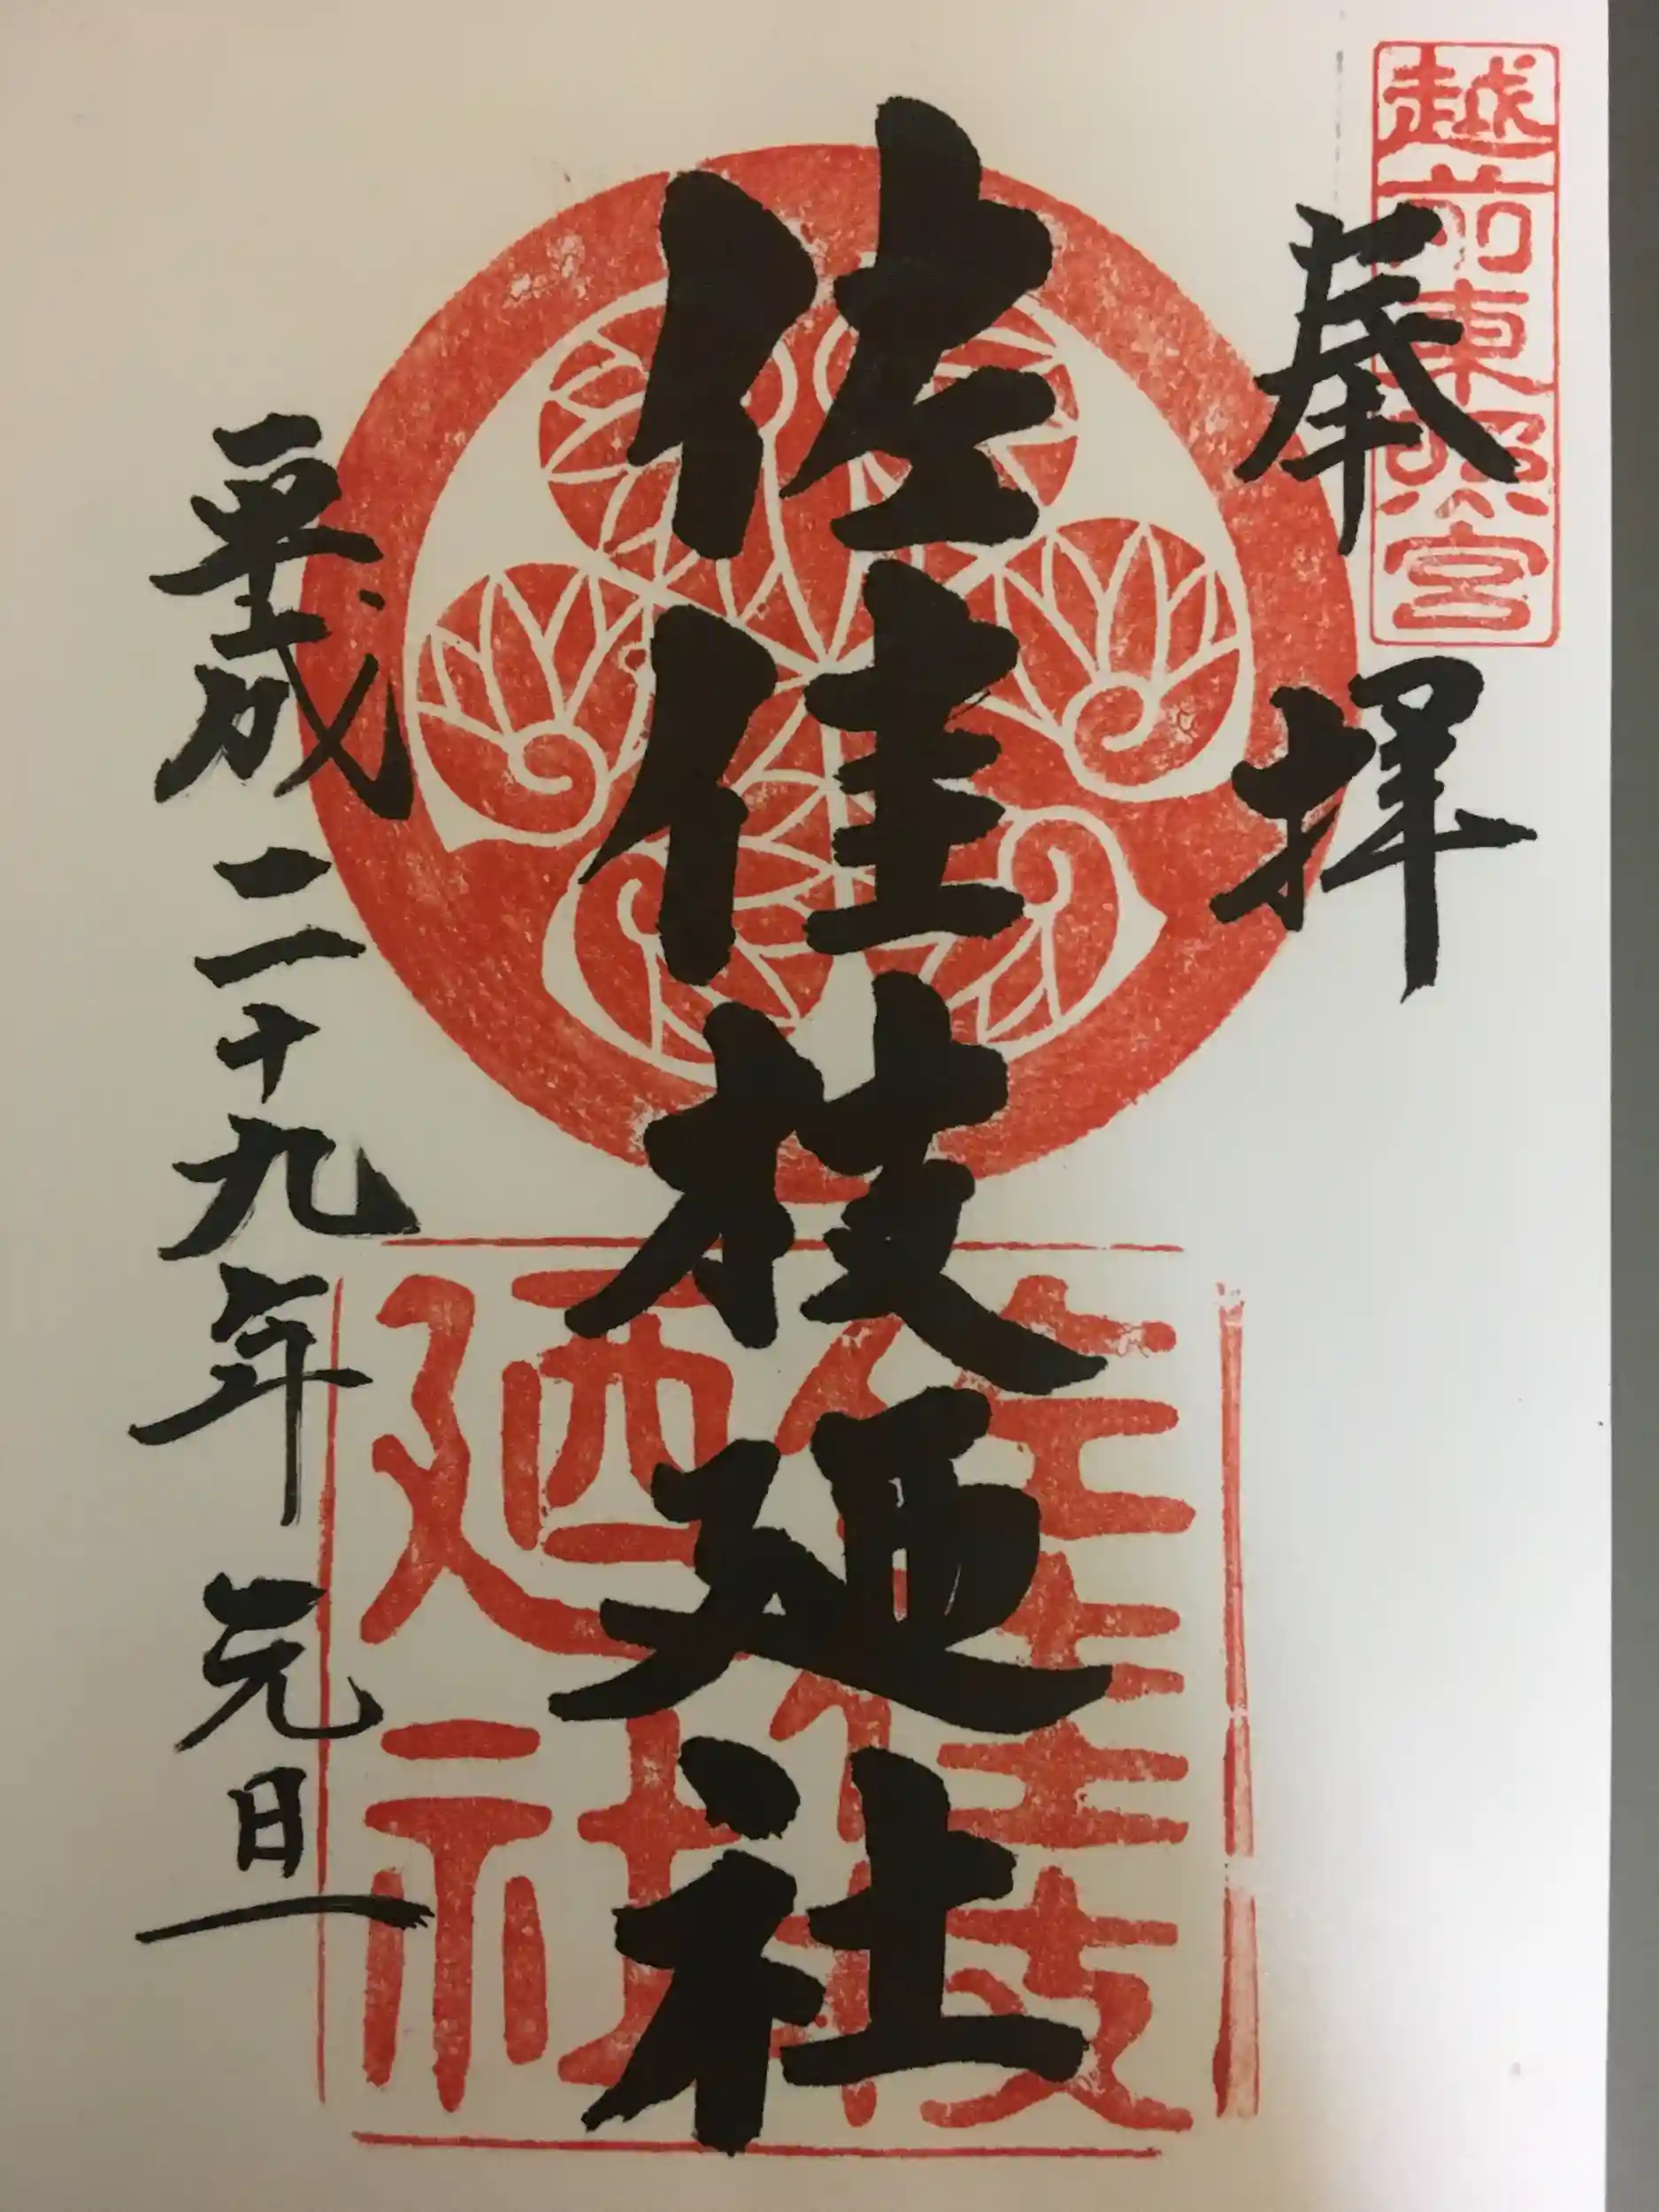 越前東照宮
奉拝
佐佳枝廼社
平成二十九年 元旦
佐佳枝
廼社